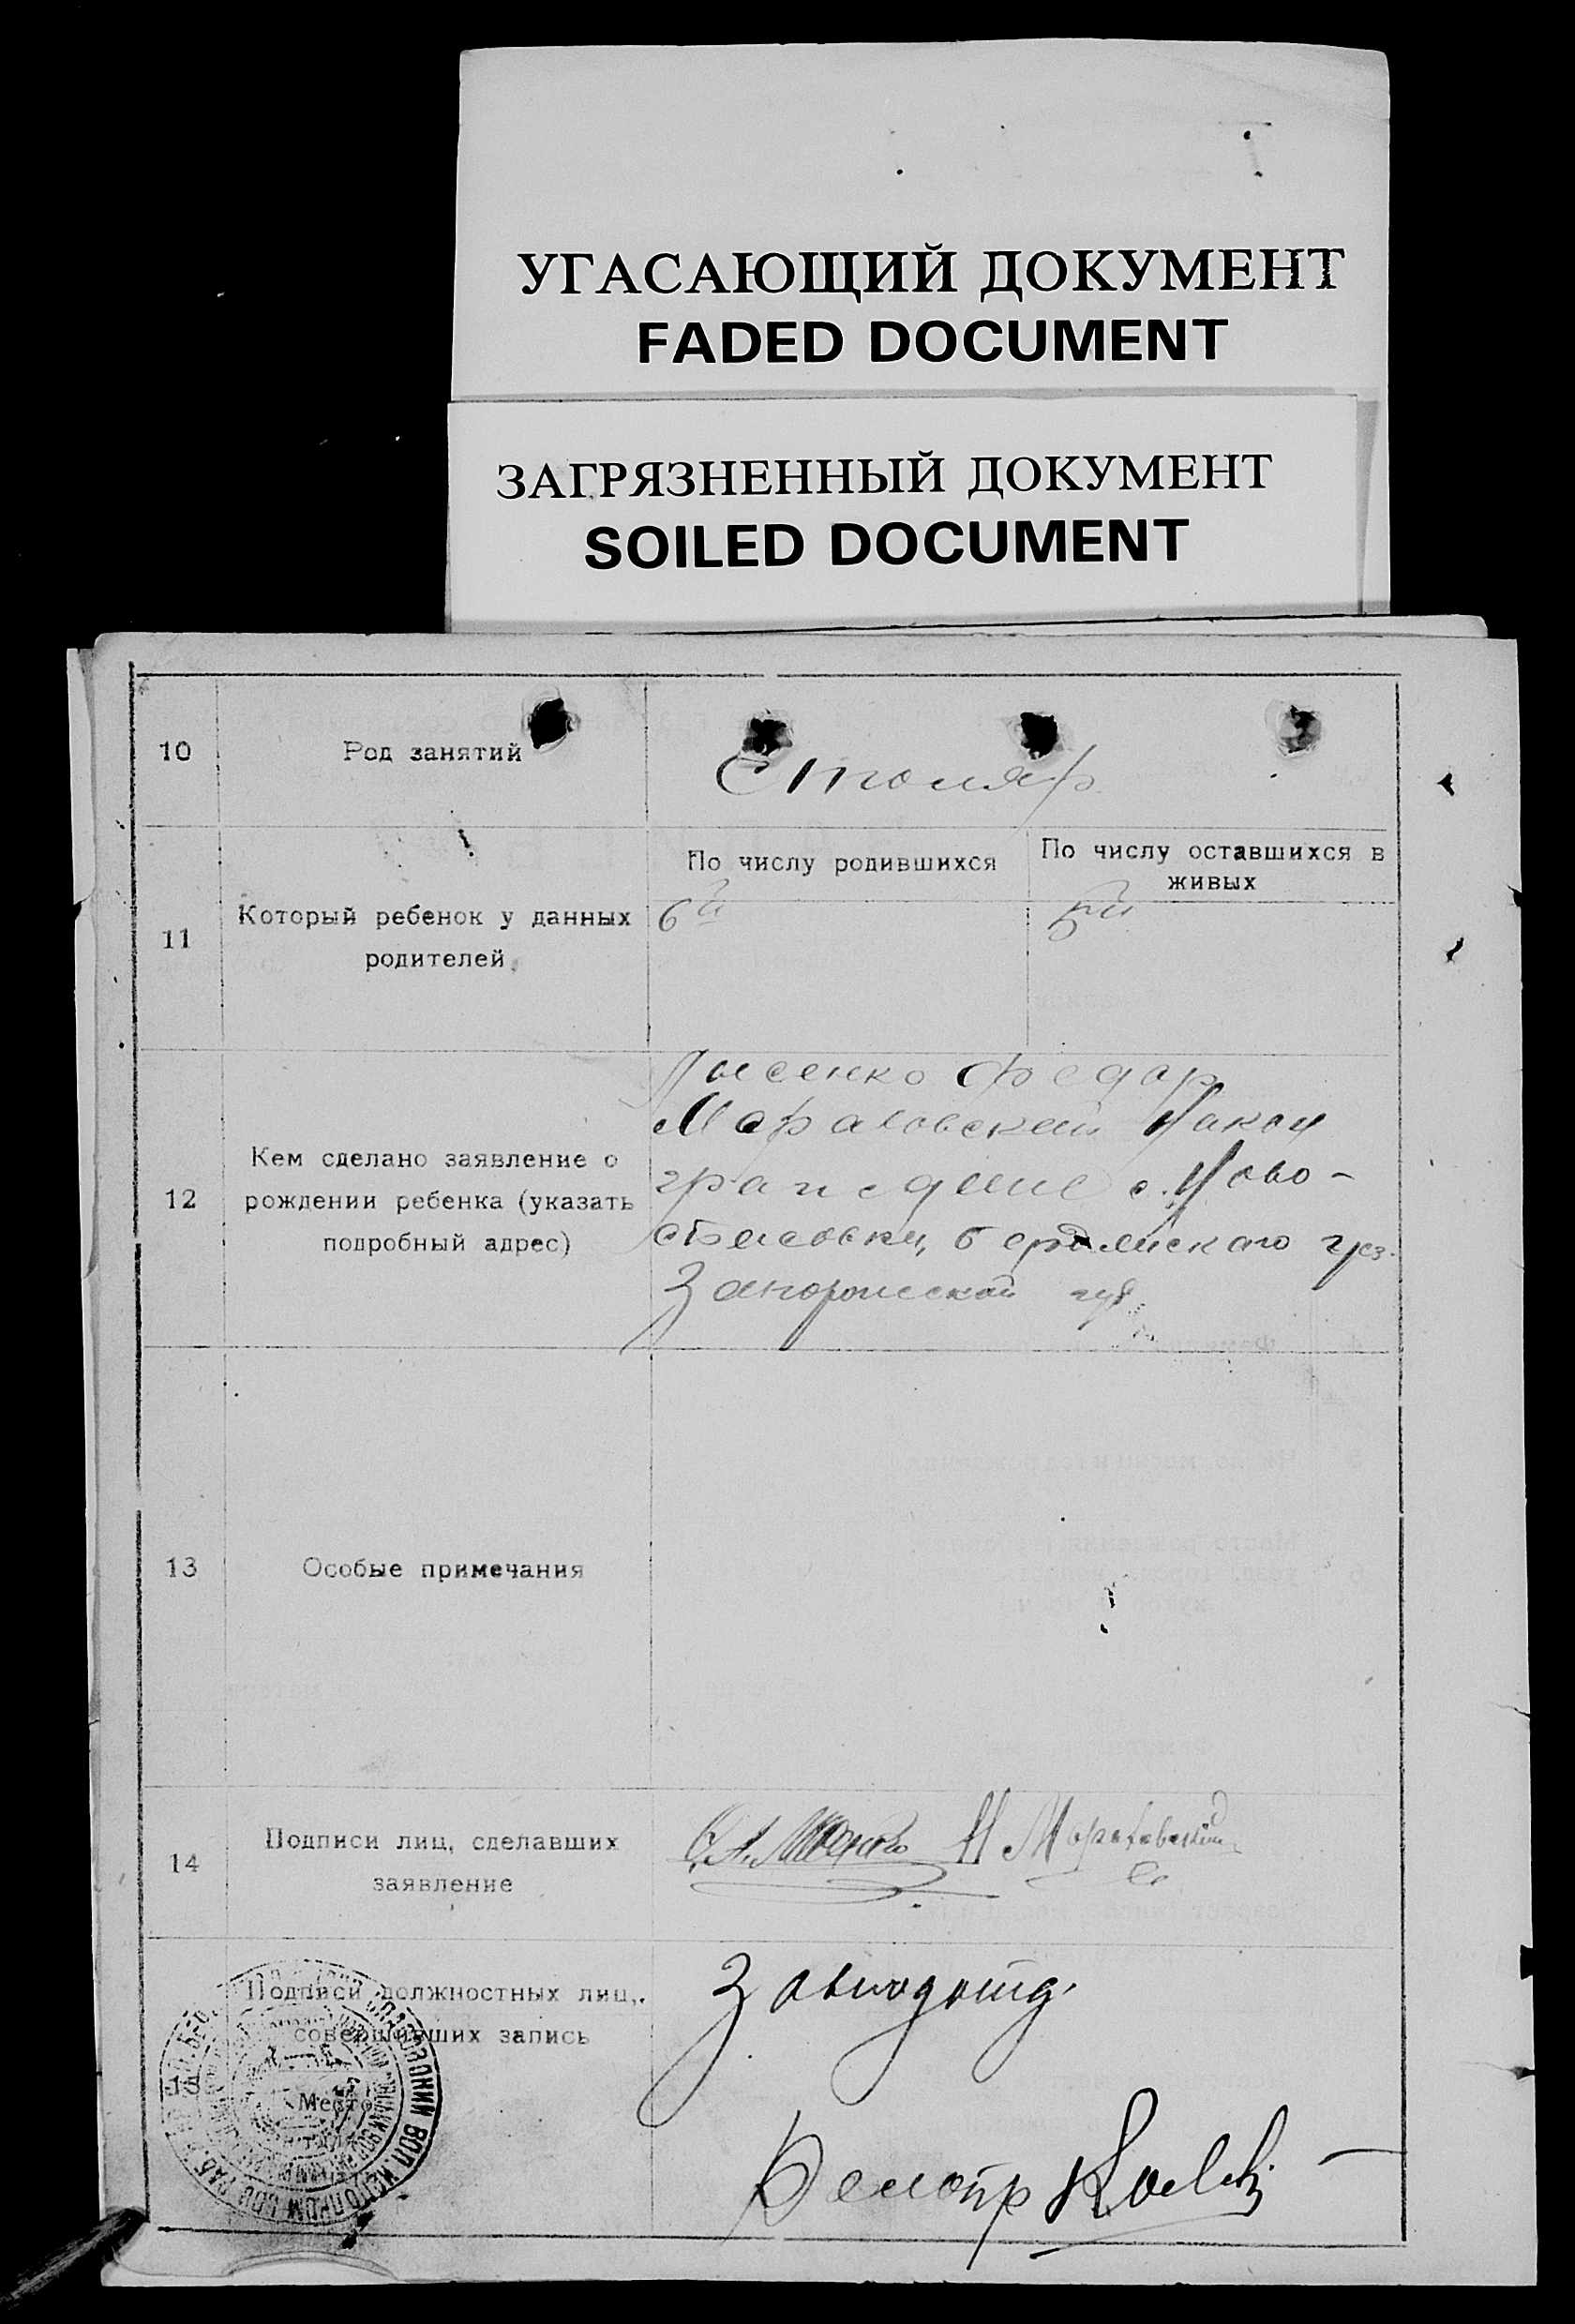 УГАСАЮЩИЙ ДОКУМЕНТ
FADED DOCUMENT
ЗАГРЯЗНЕННЫЙ ДОКУМЕНТ
SOILED DOCUMENT
10 Род занятий Столяр
11 Который ребенок у данных родителей
По числу родившихся
По числу оставшихся в живых
6й
5й
12 Кем сделано заявление о рождении ребенка (указать подробный адрес)
Лысенко Федор
граждане с. Ново-
Запорожской губ
13 Особые примечания
14 Подписи лиц, сделавших заявление
15 Подписи должностных лиц, совершивших запись
Место
Делопр